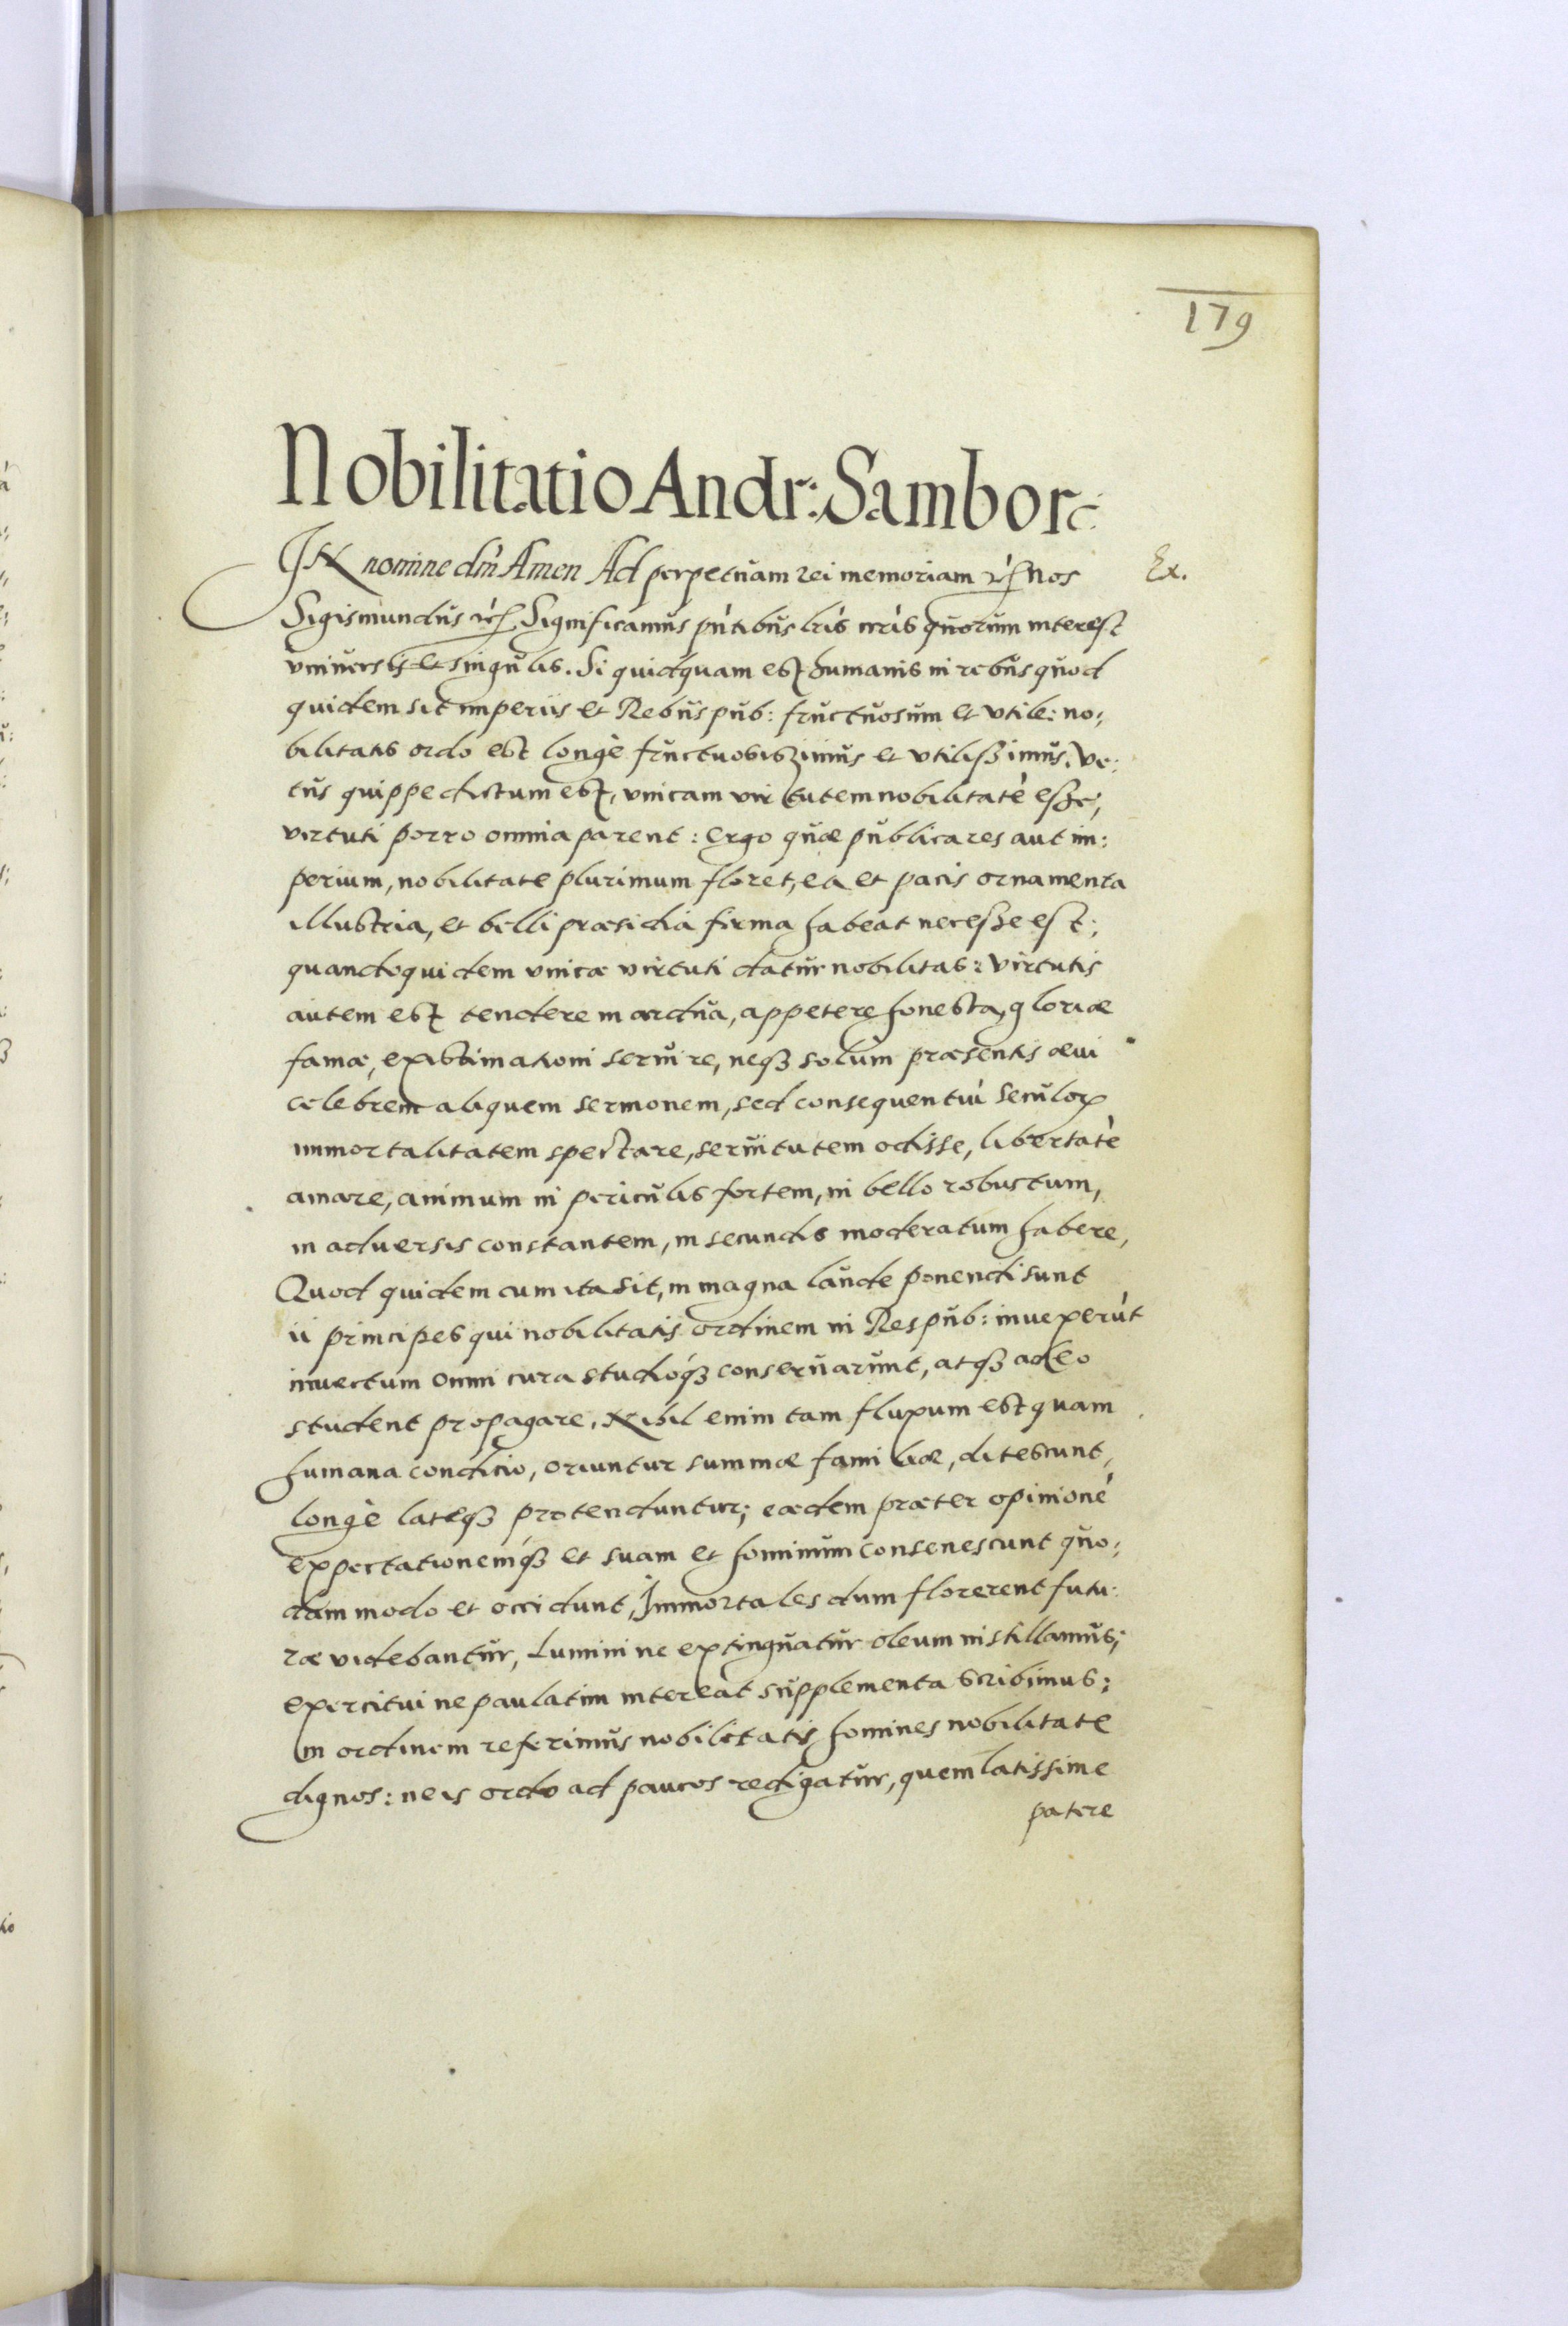 179
Nobilitatio Andr: Sambor:
IN nomine dńi Amen Ad perpetuam rei memoriam etc̃ Nos
Ex.
Sigismundus etc̃ Significamus pn̄tibus lr̄is nr̄is quorum interest
vniuersis et singulis. Si quidquam est humanis in rebus quod
quidem sit imperiis et Rebus pub: fructuosum et vtile: no:
bilitatis ordo est longè fructuosiszimus et vtiliszimus. Ve:
tus quippe dictum est, vnicam virtutem nobilitatē esze,
virtuti porro omnia parent: ergo quæ publica res aut im:
perium, nobilitate plurimum floret, ea et pacis ornamenta
illustria, et belli præsidia firma habeat necesze est;
quandoquidem vnicæ virtuti datur nobilitas: virtutis
autem est tendere in ardua, appetere honesta, gloriæ
famæ, existimationi seruire, neqз solum præsentis æui
celebrem aliquem sermonem, sed consequentiū seculorꝝ
immortalitatem spectare, seruitutem odisse, libertatē
amare, animum in periculis fortem, in bello robustum,
in aduersis constantem, in secundis moderatum habere,
Quod quidem cum ita sit, in magna laude ponendi sunt
ii principes qui nobilitatis ordinem in Respub: inuexerūt
inuectum omni cura studioqз conseruarunt, atqз adeo
student propagare. Nihil enim tam fluxum est quam
humana conditio, oriuntur summæ familiæ, ditescunt,
longè lateqз protenduntur; eædem præter opinionē
expectationemqз et suam et hominum consenescunt quo:
dam modo et occidunt, Immortales dum florerent futu:
ræ videbantur, Lumini ne extinguatur oleum instillamus;
exercitui ne paulatim intereat supplementa scribimus;
in ordinem referimus nobilitatis homines nobilitate
dignos: ne is ordo ad paucos redigatur, quem latissime
patere